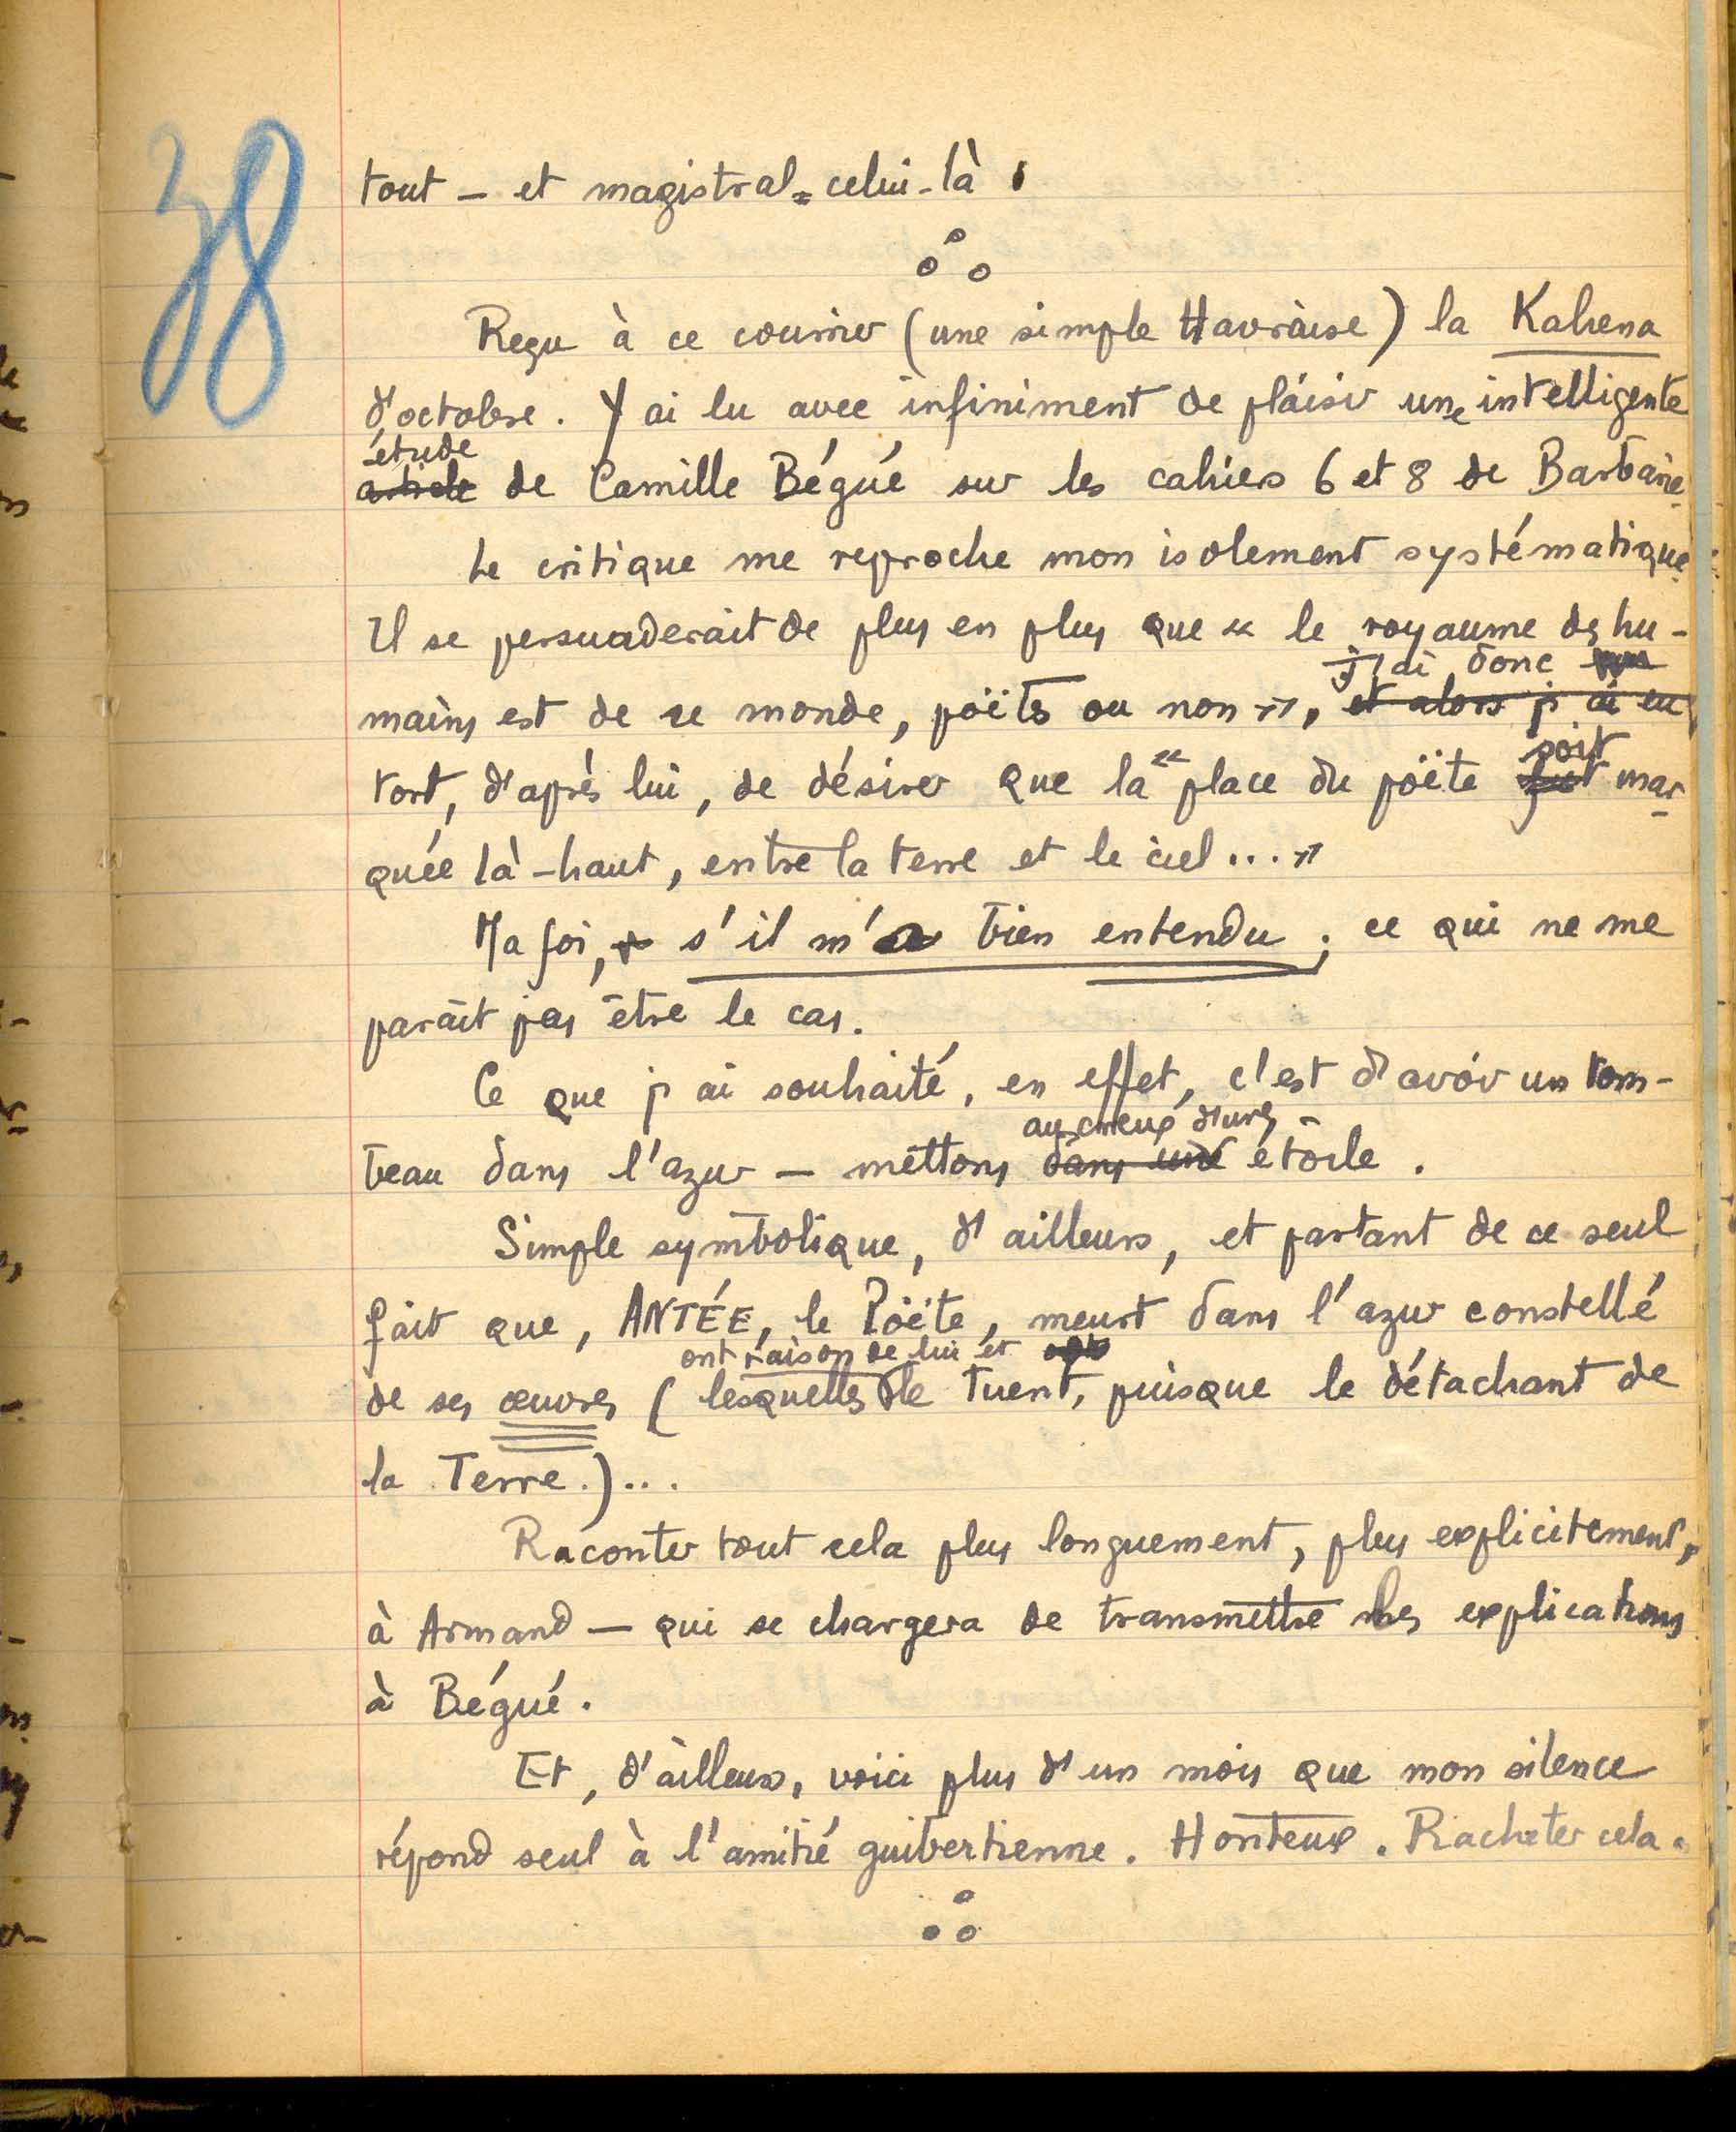 38
tout – et magistral = celui-là.
Reçu à ce courrier (une simple Havraise) la Kahena
d'octobre. Y ai lu avec infiniment de plaisir une intelligente
étude
article de Camille Bégué sur les cahiers 6 et 8 de Barbarie.
Le critique me reproche mon isolement systématique.
Il se persuaderait de plus en plus que « le royaume des hu-
J'ai donc
mains est de ce monde, poëtes ou non », et alors j'ai eu
soit
tort, d'après lui, de désirer que la « place du poëte fut mar-
quée là-haut, entre la terre et le ciel... »
Ma foi, s'il m'a bien entendu ; ce qui ne me
paraît pas être le cas.
Ce que j'ai souhaité, en effet, c'est d'avoir un tom-
au creux d'une
beau dans l'azur – mettons dans une étoile.
Simple symbolique, d'ailleurs, et partant de ce seul
fait que, ANTÉE, le Poëte, meurt dans l'azur constellé
ont raison de lui et
de ses œuvres (lesquelles le tuent, puisque le détachant de
la Terre.)...
Raconter tout cela plus longuement, plus explicitement,
à Armand – qui se chargera de transmettre mes explications
à Bégué.
Et, d'ailleurs, voici plus d'un mois que mon silence
répond seul à l'amitié guibertienne. Honteux. Racheter cela.